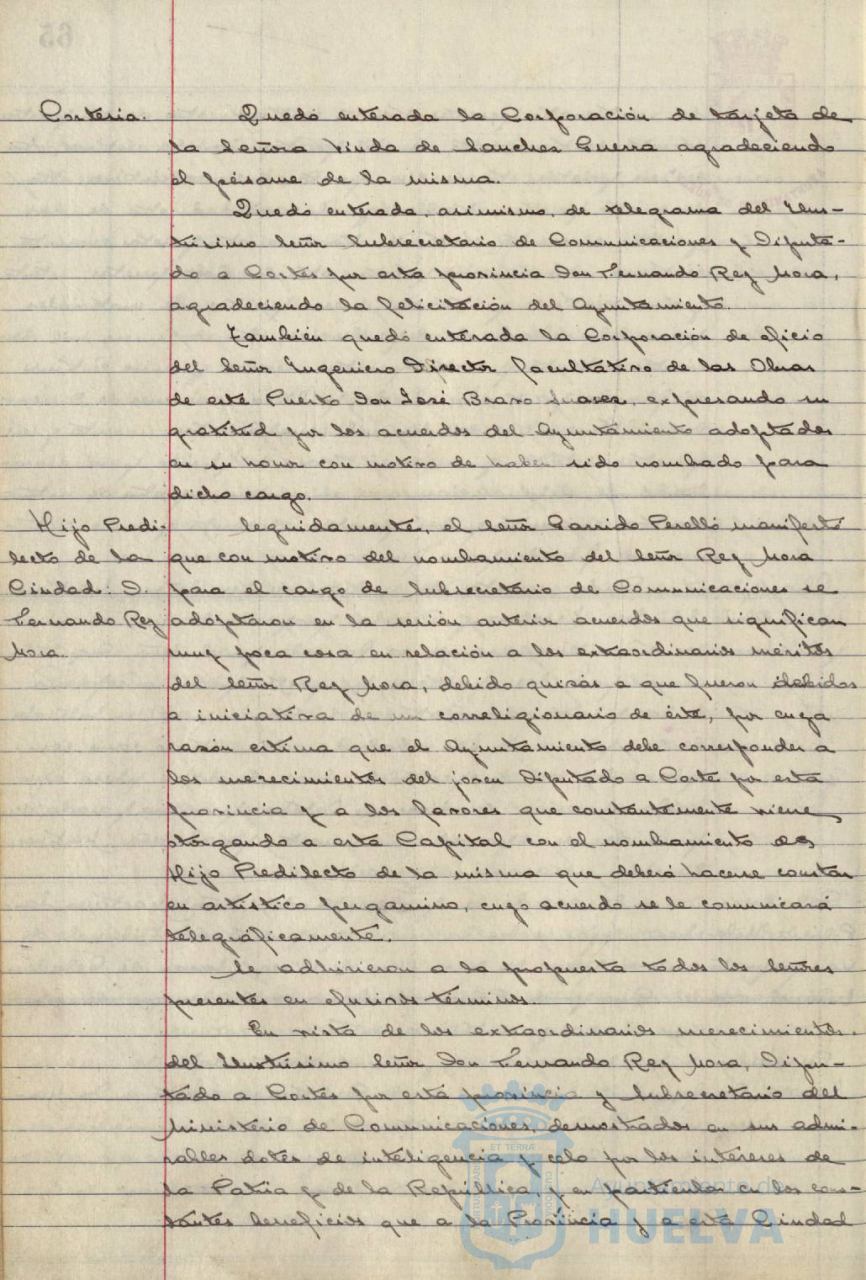 Cortesia.
Quedó enterada la Corporación de tarjeta de
la Señora Viuda de Sanchez Guerra agradeciendo
el pésame de la misma.
Quedó enterada, asimismo, de telegrama del Ilus-
trísimo Señor Subsecretario de Comunicaciones y Diputa-
do a Cortes por esta provincia Don Fernando Rey Mora,
agradeciendo la felicitación del Ayuntamiento.
También quedó enterada la Corporación de oficio
del Señor Ingeniero Director facultativo de las Obras
de este Puerto Don José Bravo Suarez, expresando su
gratitud por los acuerdos del Ayuntamiento adoptados
en su honor con motivo de haber sido nombrado para
dicho cargo.
Hijo Predi-
lecto de la
Ciudad: D.
Fernando Rey
Mora.
Seguidamente, el Señor Garrido Perelló manifestó
que con motivo del nombramiento del Señor Rey Mora
para el cargo de Subsecretario de Comunicaciones se
adoptaron en la sesión anterior acuerdos que significan
muy poca cosa en relación a los extraordinarios méritos
del Señor Rey Mora, debido quizás a que fueron debidos
a iniciativa de un correligionario de éste, por cuya
razón estima que el Ayuntamiento debe corresponder a
los merecimientos del joven Diputado a Corte por esta
provincia y a los favores que constantemente viene
otorgando a esta Capital con el nombramiento de
Hijo Predilecto de la misma que deberá hacerse constar
en artístico pergamino, cuyo acuerdo se le comunicará
telegráficamente.
Se adhirieron a la propuesta todos los Señores
presentes en efusivos términos.
En vista de los extraordinarios merecimientos
del Ilustrísimo Señor Don Fernando Rey Mora, Dipu-
tado a Cortes por esta provincia y Subsecretario del
Ministerio de Comunicaciones, demostrados en sus admi-
rables dotes de inteligencia y celo por los intereses de
la Patria y de la República, y en particular en los cons-
tantes beneficios que a la Provincia y a esta Ciudad
ET TERRÆ
Ayuntamiento de
HUELVA
65